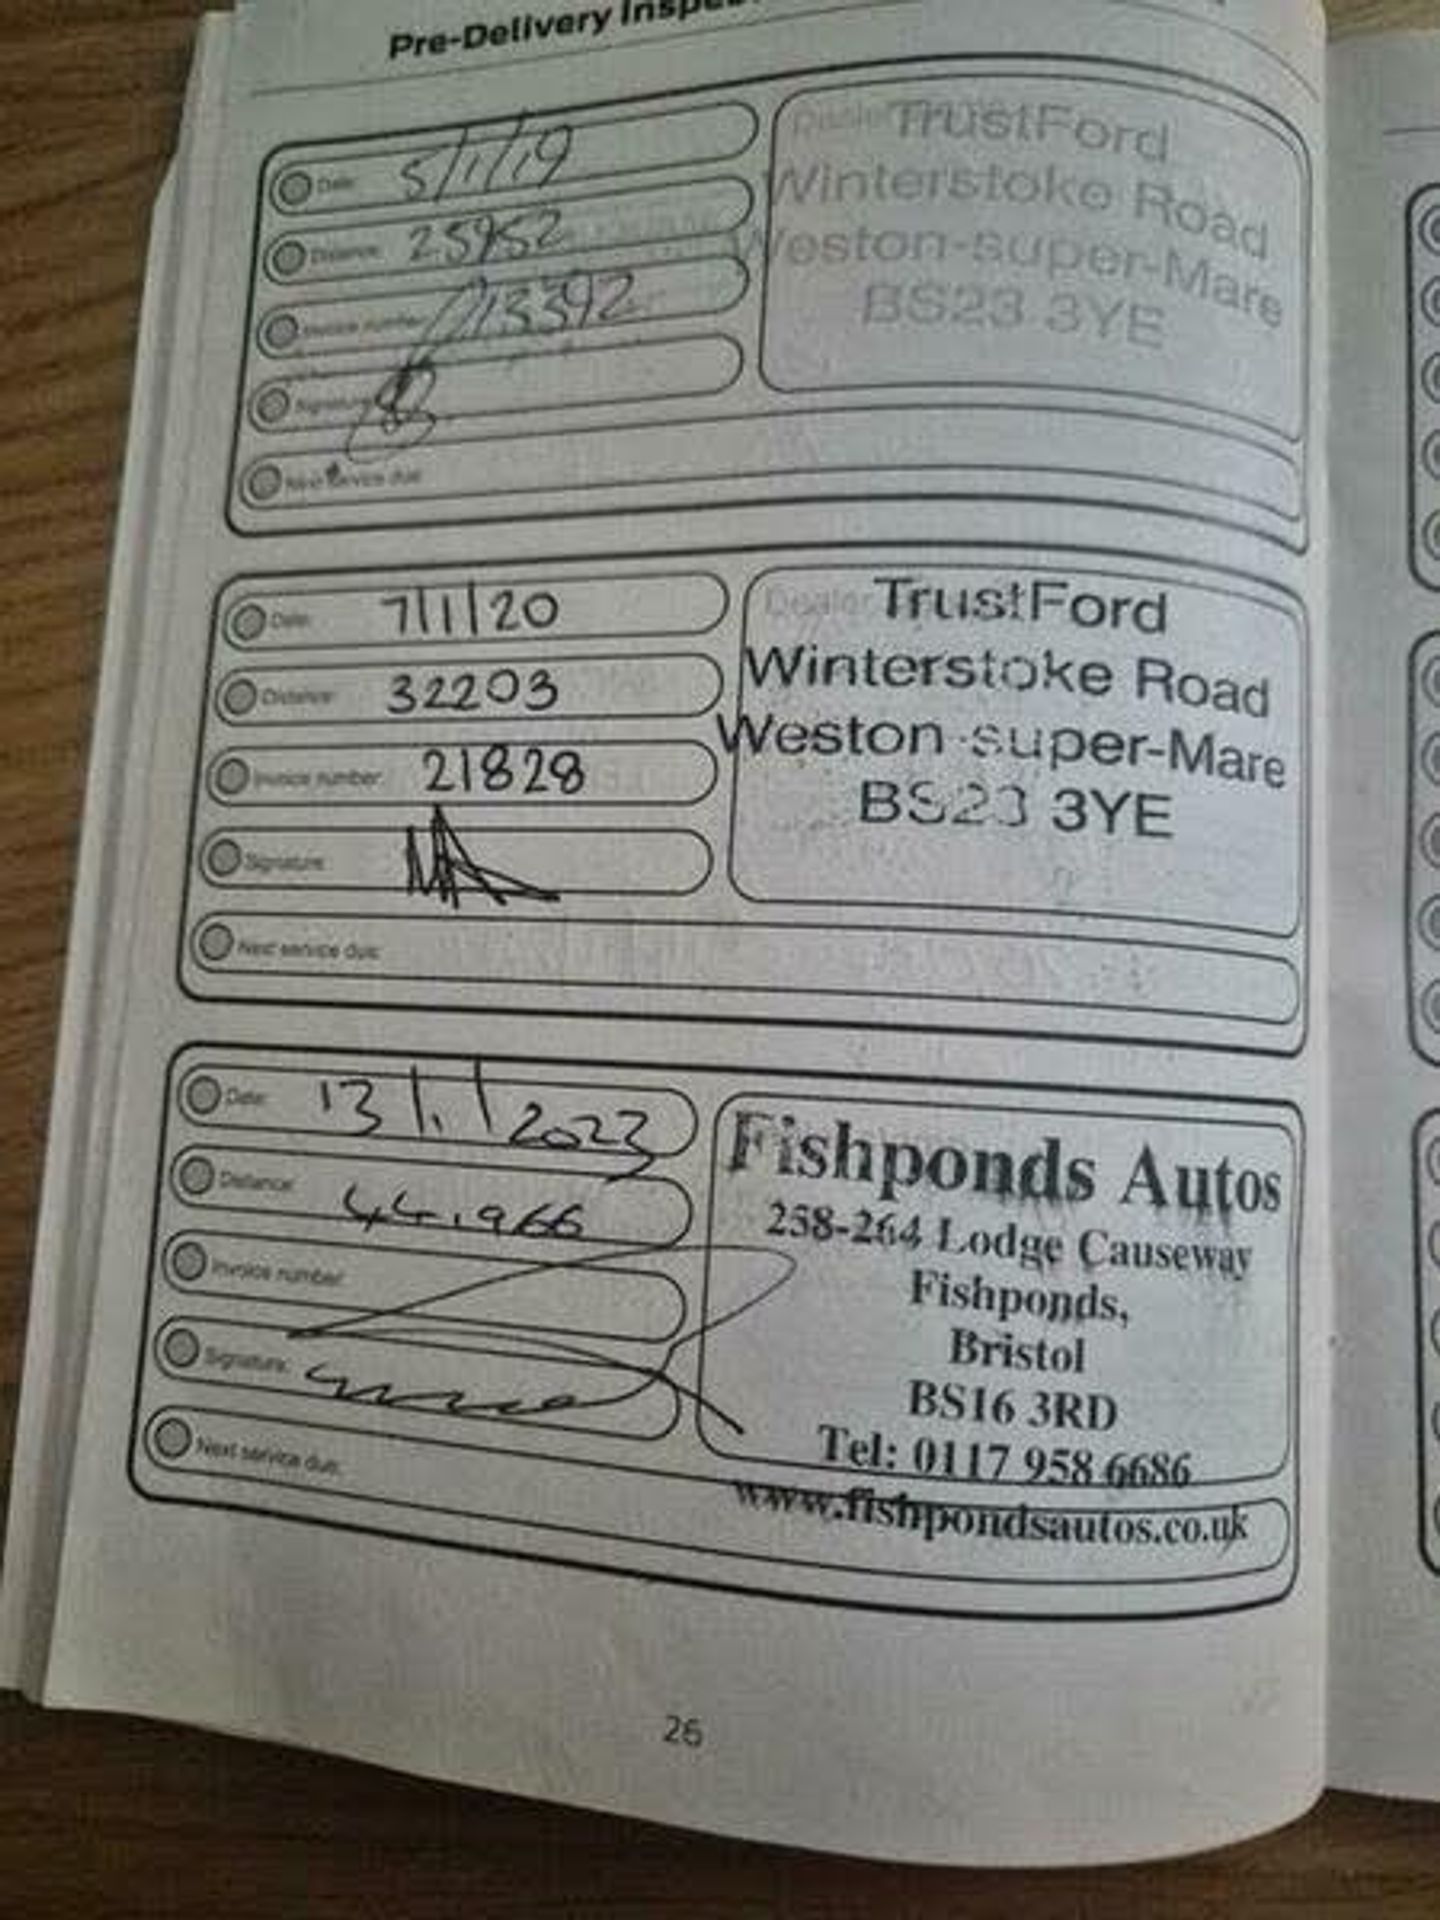 Pre-Delivery
Date: 5/1/19
Distance: 25952
Invoice number: 13392
Signature:
Next service due:
Dealer TrustFord
Winterstoke Road
Weston-super-Mare
BS23 3YE
Date: 7/1/20
Distance: 32203
Invoice number: 21828
Signature:
Next service due:
Dealer TrustFord
Winterstoke Road
Weston-super-Mare
BS23 3YE
Date: 13/1/2023
Distance: 44,966
Invoice number:
Signature:
Next service due:
Fishponds Autos
258-264 Lodge Causeway
Fishponds,
Bristol
BS16 3RD
Tel: 0117 958 6686
www.fishpondsautos.co.uk
26